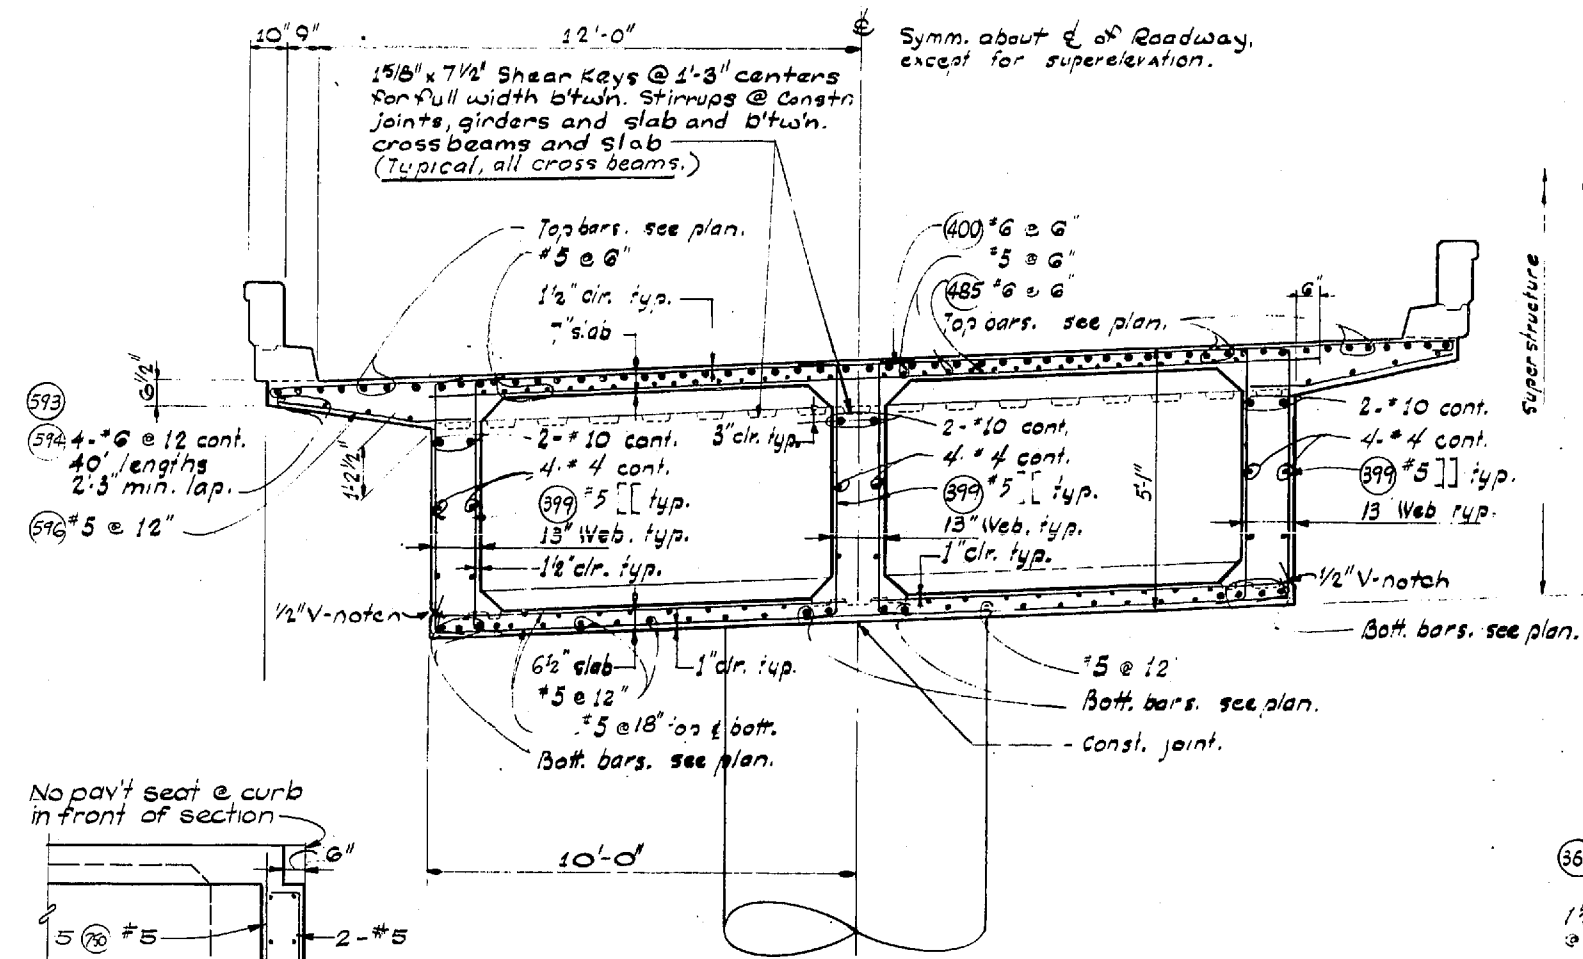 10" 9"
12'-0"
℄
Symm. about ℄ of Roadway,
except for superelevation.
15/8" x 7 1/2" Shear Keys @ 1'-3" centers
for full width b'tw'n. Stirrups @ Constr.
joints, girders and slab and b'tw'n.
cross beams and slab
(Typical, all cross beams.)
Top bars. see plan.
#5 @ 6"
1 1/2" clr. typ.
7" slab
400 #6 @ 6"
#5 @ 6"
485 #6 @ 6"
Top bars. see plan.
6"
Superstructure
6 1/2"
593
594 4-#6 @ 12 cont.
40' lengths
2'-3" min. lap.
596 #5 @ 12"
1'-2 1/2"
2-#10 cont.
4-#4 cont.
399 #5 [[ typ.
13" Web. typ.
1 1/2" clr. typ.
3" clr. typ.
2-#10 cont.
4-#4 cont.
399 #5 [[ typ.
13" Web. typ.
1" clr. typ.
5'-1"
2-#10 cont.
4-#4 cont.
399 #5 ]] typ.
13 Web typ.
1/2" V-notch
1/2" V-notch
Bott. bars. see plan.
6 1/2" slab
1" clr. typ.
#5 @ 12"
#5 @ 18" top & bott.
Bott. bars. see plan.
#5 @ 12
Bott. bars. see plan.
Const. joint.
10'-0"
No pav't seat @ curb
in front of section
6"
5 750 #5
2-#5
36
@